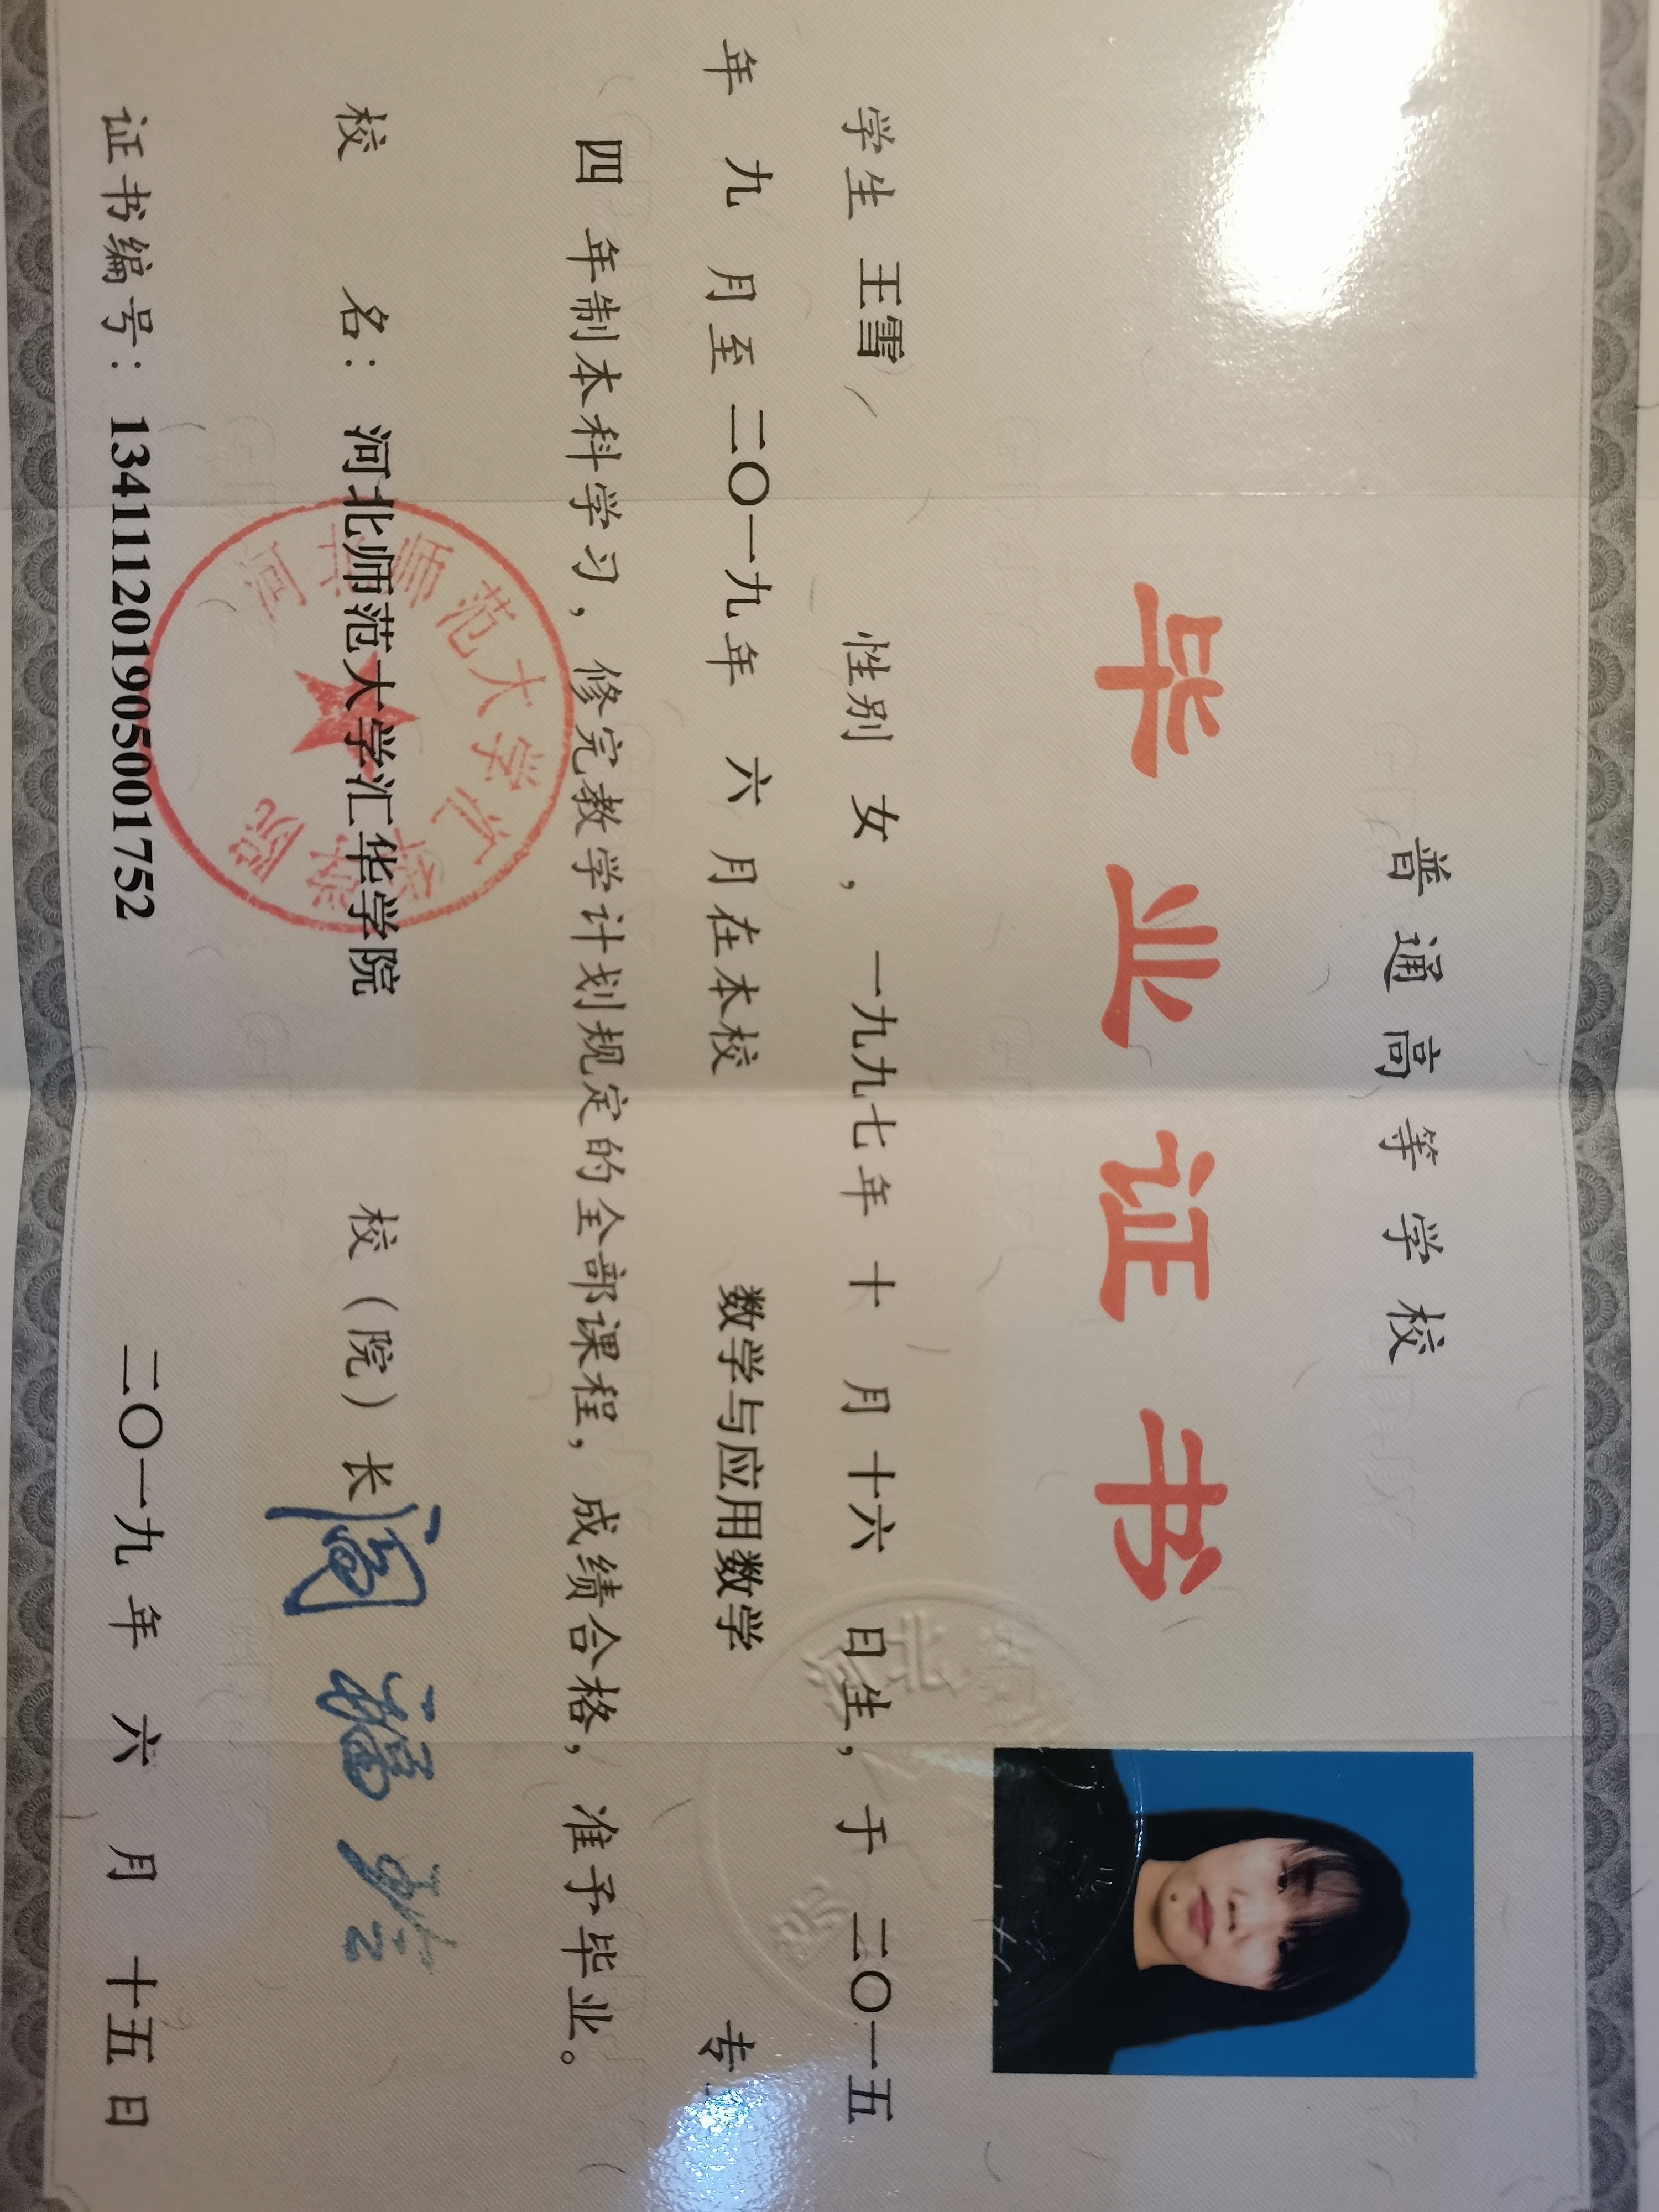 普通高等学校
毕业证书
学生 王雪 性别 女， 一九九七年 十 月 十六 日生，于 二〇一五
年 九 月至 二〇一九年 六 月在本校 数学与应用数学 专
四 年制本科学习，修完教学计划规定的全部课程，成绩合格，准予毕业。
校 名：河北师范大学汇华学院 校（院）长
河北师范大学汇华学院
证书编号：134111201905001752 二〇一九 年 六 月 十五 日